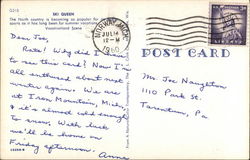 G215
SKI QUEEN
The North country is becoming as popular for
sports as it has long been for summer vacations.
Vacationland Scene
NORWAY, MICH.
JUL 14
12-M
1960
POST CARD
Dear Joe,
Rats! Why did I have
to see this card? Now I'm
all enthused about next
winter again. We are
at Iron Mountain, Mich.,
& it's almost cold enough
to snow. With luck
we'll be home on
Friday afternoon.
Anne
Mr. Joe Naughton
1110 Park St.
Tarentum, Pa.